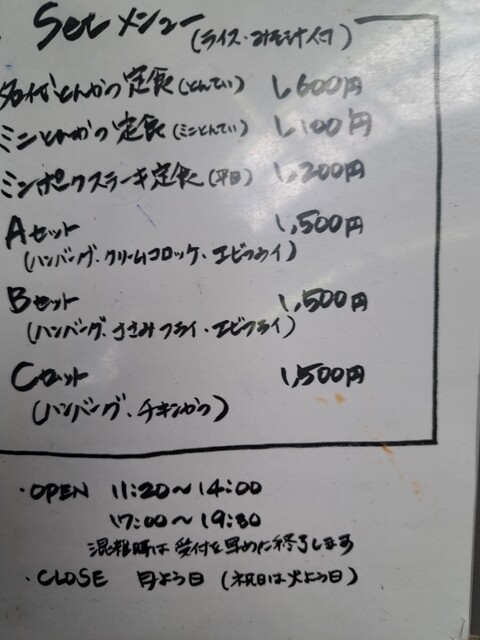 Set メニュー (ライス・みそ汁付)
とんかつ定食 (とんてい) 1,600円
ミニとんかつ定食 (ミニとんてい) 1,100円
ミニポークステーキ定食 (平日) 1,200円
Aセット 1,500円
(ハンバーグ、クリームコロッケ、エビフライ)
Bセット 1,500円
(ハンバーグ、ささみフライ・エビフライ)
Cセット 1,500円
(ハンバーグ、チキンかつ)
・OPEN 11:20〜14:00
17:00〜19:30
混雑時は受付を早めに終了します
・CLOSE 月よう日 (祝日は火よう日)